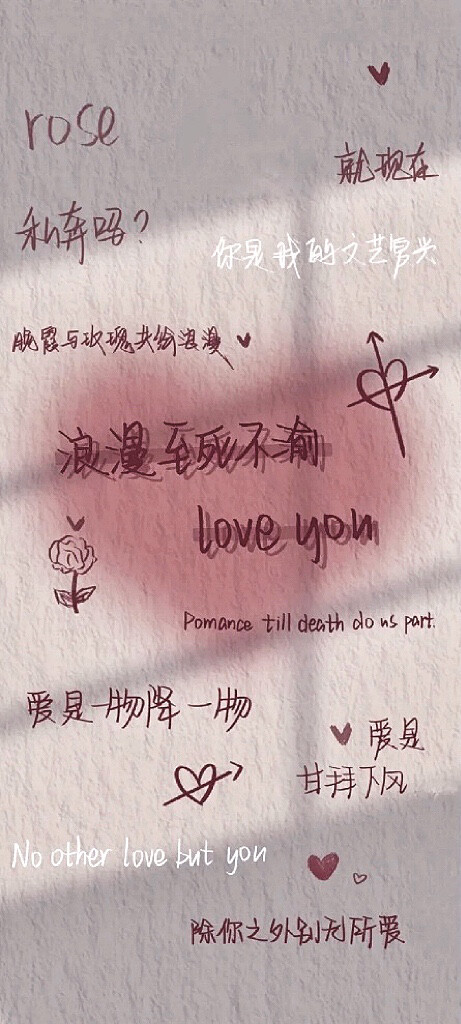 rose
就现在
私奔吗？
你是我的文艺复兴
晚霞与玫瑰共给浪漫
浪漫至死不渝
love you
Pomance till death do us part.
爱是一物降一物
爱是
甘拜下风
No other love but you
除你之外别无所爱